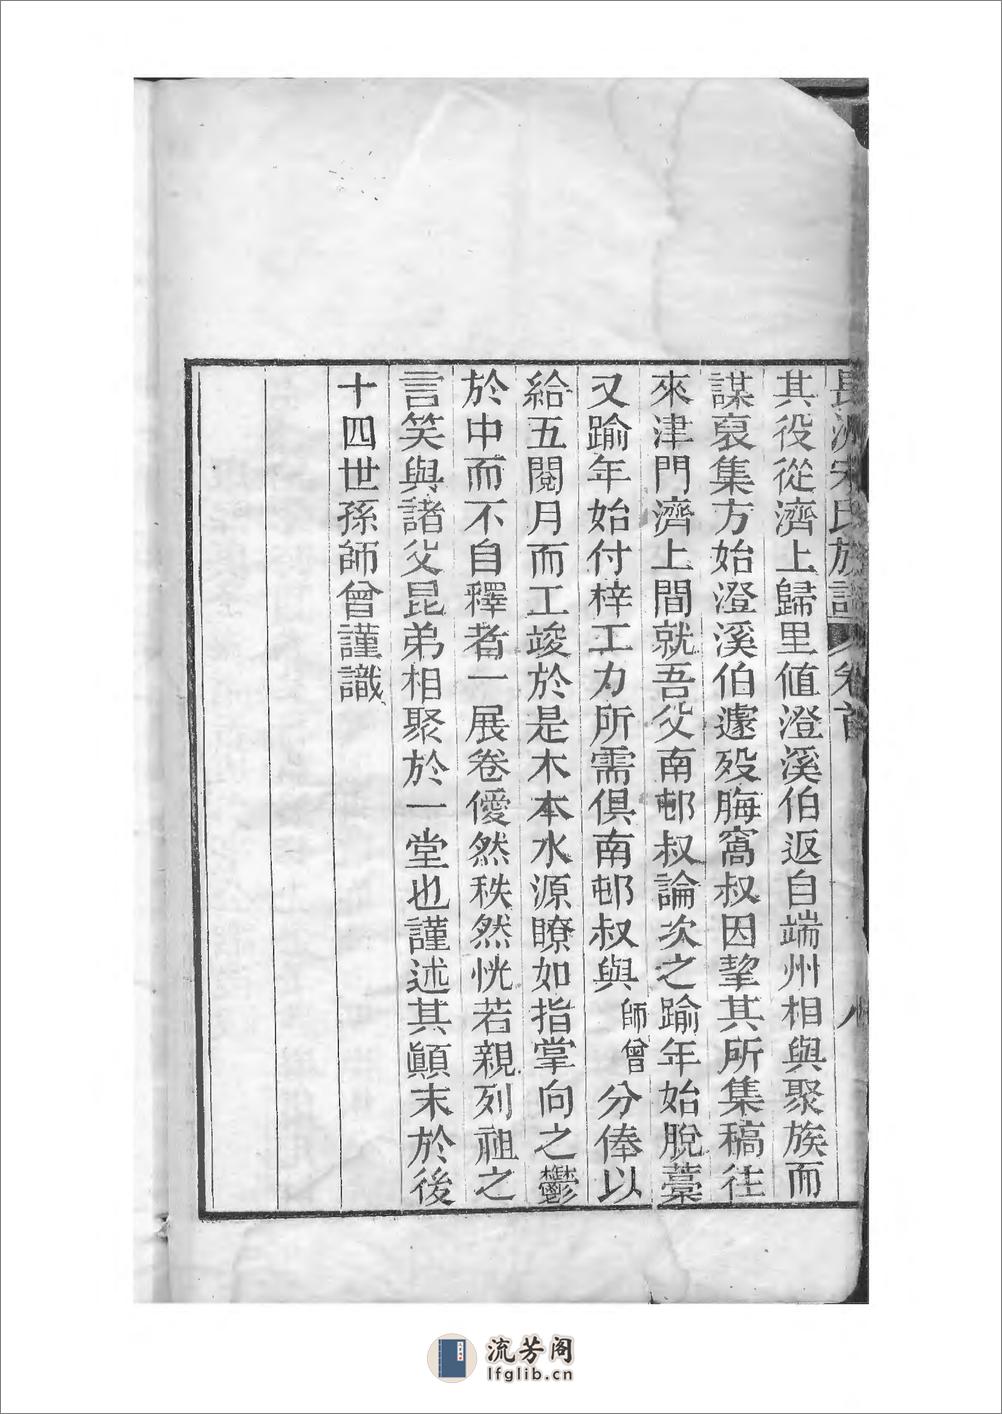 長洲宋氏族譜 卷首 八
其役從濟上歸里値澄溪伯返自端州相與聚族而
謀裒集方始澄溪伯遽歿脢窩叔因挈其所集稿往
來津門濟上間就吾父南邨叔論次之踰年始脫藁
又踰年始付梓工力所需俱南邨叔與師曾分俸以
給五閱月而工竣於是木本水源瞭如指掌向之鬱
於中而不自釋者一展卷僾然秩然恍若親列祖之
言笑與諸父昆弟相聚於一堂也謹述其顚末於後
十四世孫師曾謹識
流芳阁
lfglib.cn